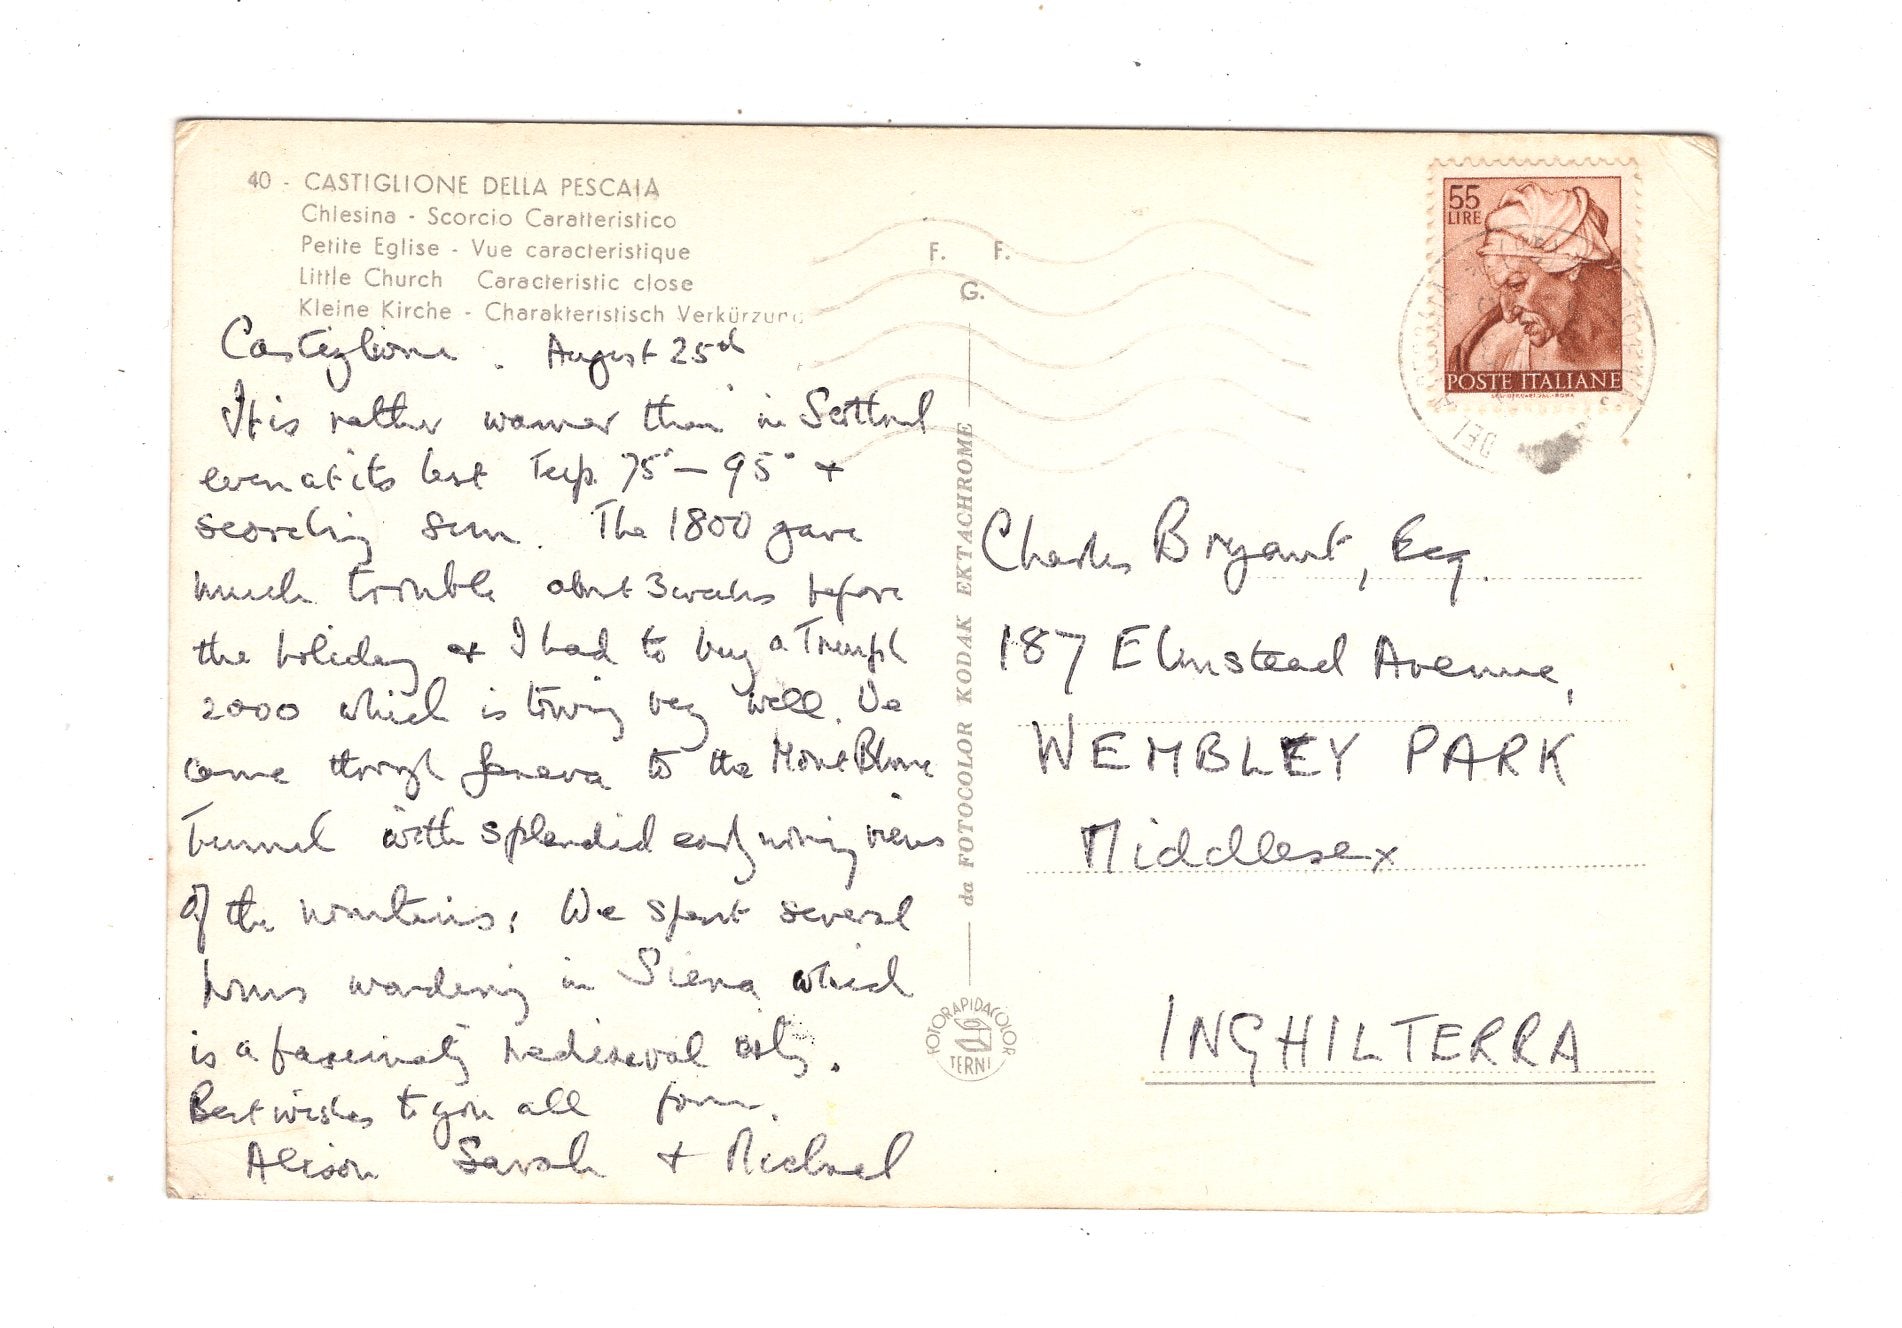 40 - CASTIGLIONE DELLA PESCAIA
Chiesina - Scorcio Caratteristico
Petite Eglise - Vue caracteristique
Little Church Caracteristic close
Kleine Kirche - Charakteristisch Verkürzung
Castiglione. August 25th
It is rather warmer than in Scotland
even at its best Temp. 75° - 95° +
scorching sun. The 1800 gave
much trouble about 3 weeks before
the holiday + I had to buy a Triumph
2000 which is towing very well. We
came through Geneva to the Mont Blanc
Tunnel with splendid early morning views
of the mountains. We spent several
hours wandering in Siena which
is a fascinating mediaeval city.
Best wishes to you all from
Alison Sarah + Michael
F. F.
G.
da FOTOCOLOR KODAK EKTACHROME
FOTORAPIDACOLOR
TERNI
55
LIRE
POSTE ITALIANE
Charles Bryant, Esq.
187 Elmstead Avenue,
WEMBLEY PARK
Middlesex
INGHILTERRA